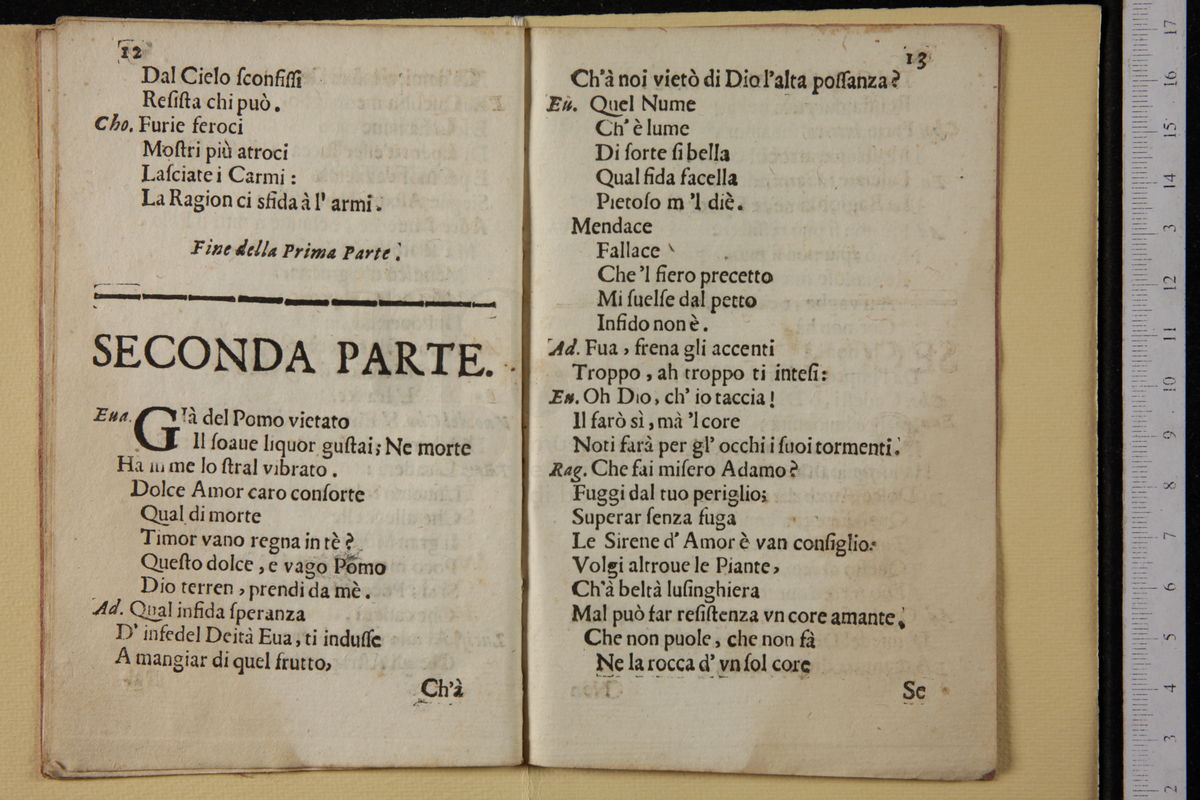 12
Dal Cielo ſconfiſſi
Reſiſta chi può.
Cho. Furie feroci
Moſtri più atroci
Laſciate i Carmi :
La Ragion ci sfida à l' armi.
Fine della Prima Parte.
SECONDA PARTE.
Eua. GIà del Pomo vietato
Il ſoaue liquor guſtai; Ne morte
Hà in me lo ſtral vibrato.
Dolce Amor caro conſorte
Qual di morte
Timor vano regna in tè ?
Queſto dolce , e vago Pomo
Dio terren , prendi da mè.
Ad. Qual infida ſperanza
D' infedel Deità Eua, ti induſſe
A mangiar di quel frutto,
Ch'à
13
Ch'à noi vietò di Dio l'alta poſſanza?
Eu. Quel Nume
Ch' è lume
Di ſorte ſi bella
Qual fida facella
Pietoſo m 'l diè.
Mendace
Fallace
Che 'l fiero precetto
Mi ſuelſe dal petto
Infido non è.
Ad. Fua , frena gli accenti
Troppo , ah troppo ti inteſi:
Eu. Oh Dio, ch' io taccia !
Il farò sì, mà 'l core
Noti farà per gl' occhi i ſuoi tormenti.
Rag. Che fai miſero Adamo ?
Fuggi dal tuo periglio;
Superar ſenza fuga
Le Sirene d' Amor è van conſiglio.
Volgi altroue le Piante,
Ch'à beltà luſinghiera
Mal può far reſiſtenza vn core amante.
Che non puole, che non fà
Ne la rocca d' vn ſol core
Se
17
16
15
14
3
12
11
10
9
8
7
6
5
4
3
2